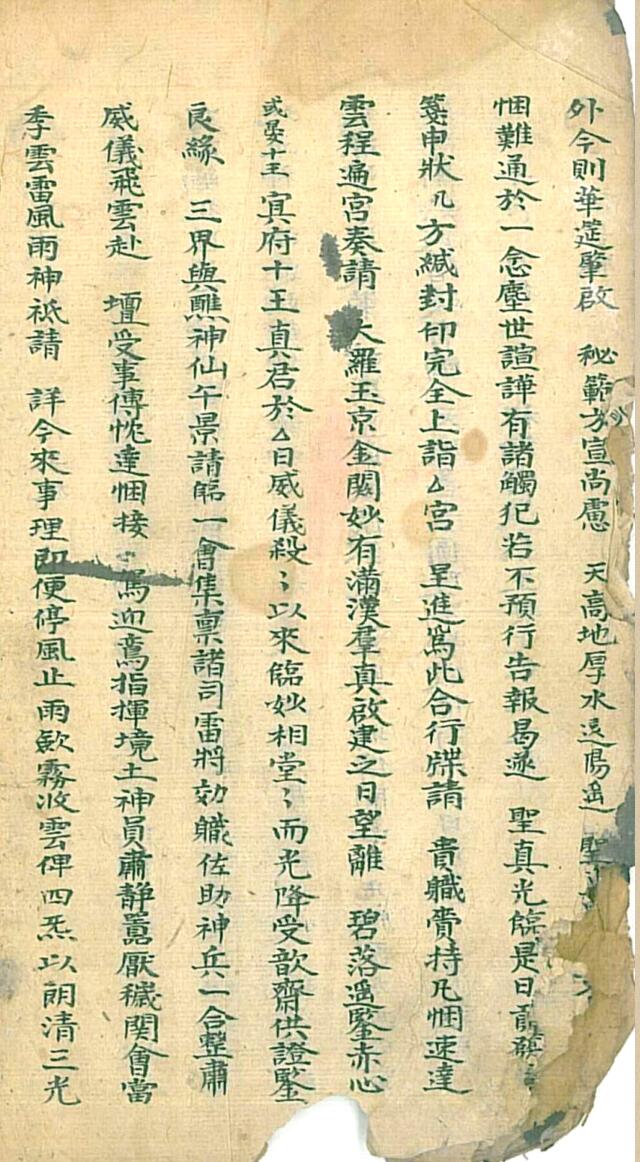 外今則華筵肇啟 秘範方宣尚慮 天高地厚水遠陽遙 聖
悃難通於一念塵世諠譁有諸觸犯若不預行告報曷遂 聖真光臨是日
箋申狀凡方緘封印完全上詣△宮 呈進爲此合行牒請 貴職賫持凡悃速達
雲程遍宮奏請 大羅玉京金闕妙有滿漢羣真啟建之日望離 碧落遥鑒赤心
或晏十王 冥府十王真君於△日威儀殺〻以來臨妙相堂〻而光降受歆齋供證鑒
良緣 三界與醮神仙午景請臨一會集稟諸司雷將効職佐助神兵一合整肅
威儀飛雲赴 壇受事傳忱達悃接 馬迎鸞指揮境土神員肅静嚚厭穢関會當
季雲雷風雨神祗請 詳今來事理即便停風止雨歛霧收雲俾四炁以朗清三光